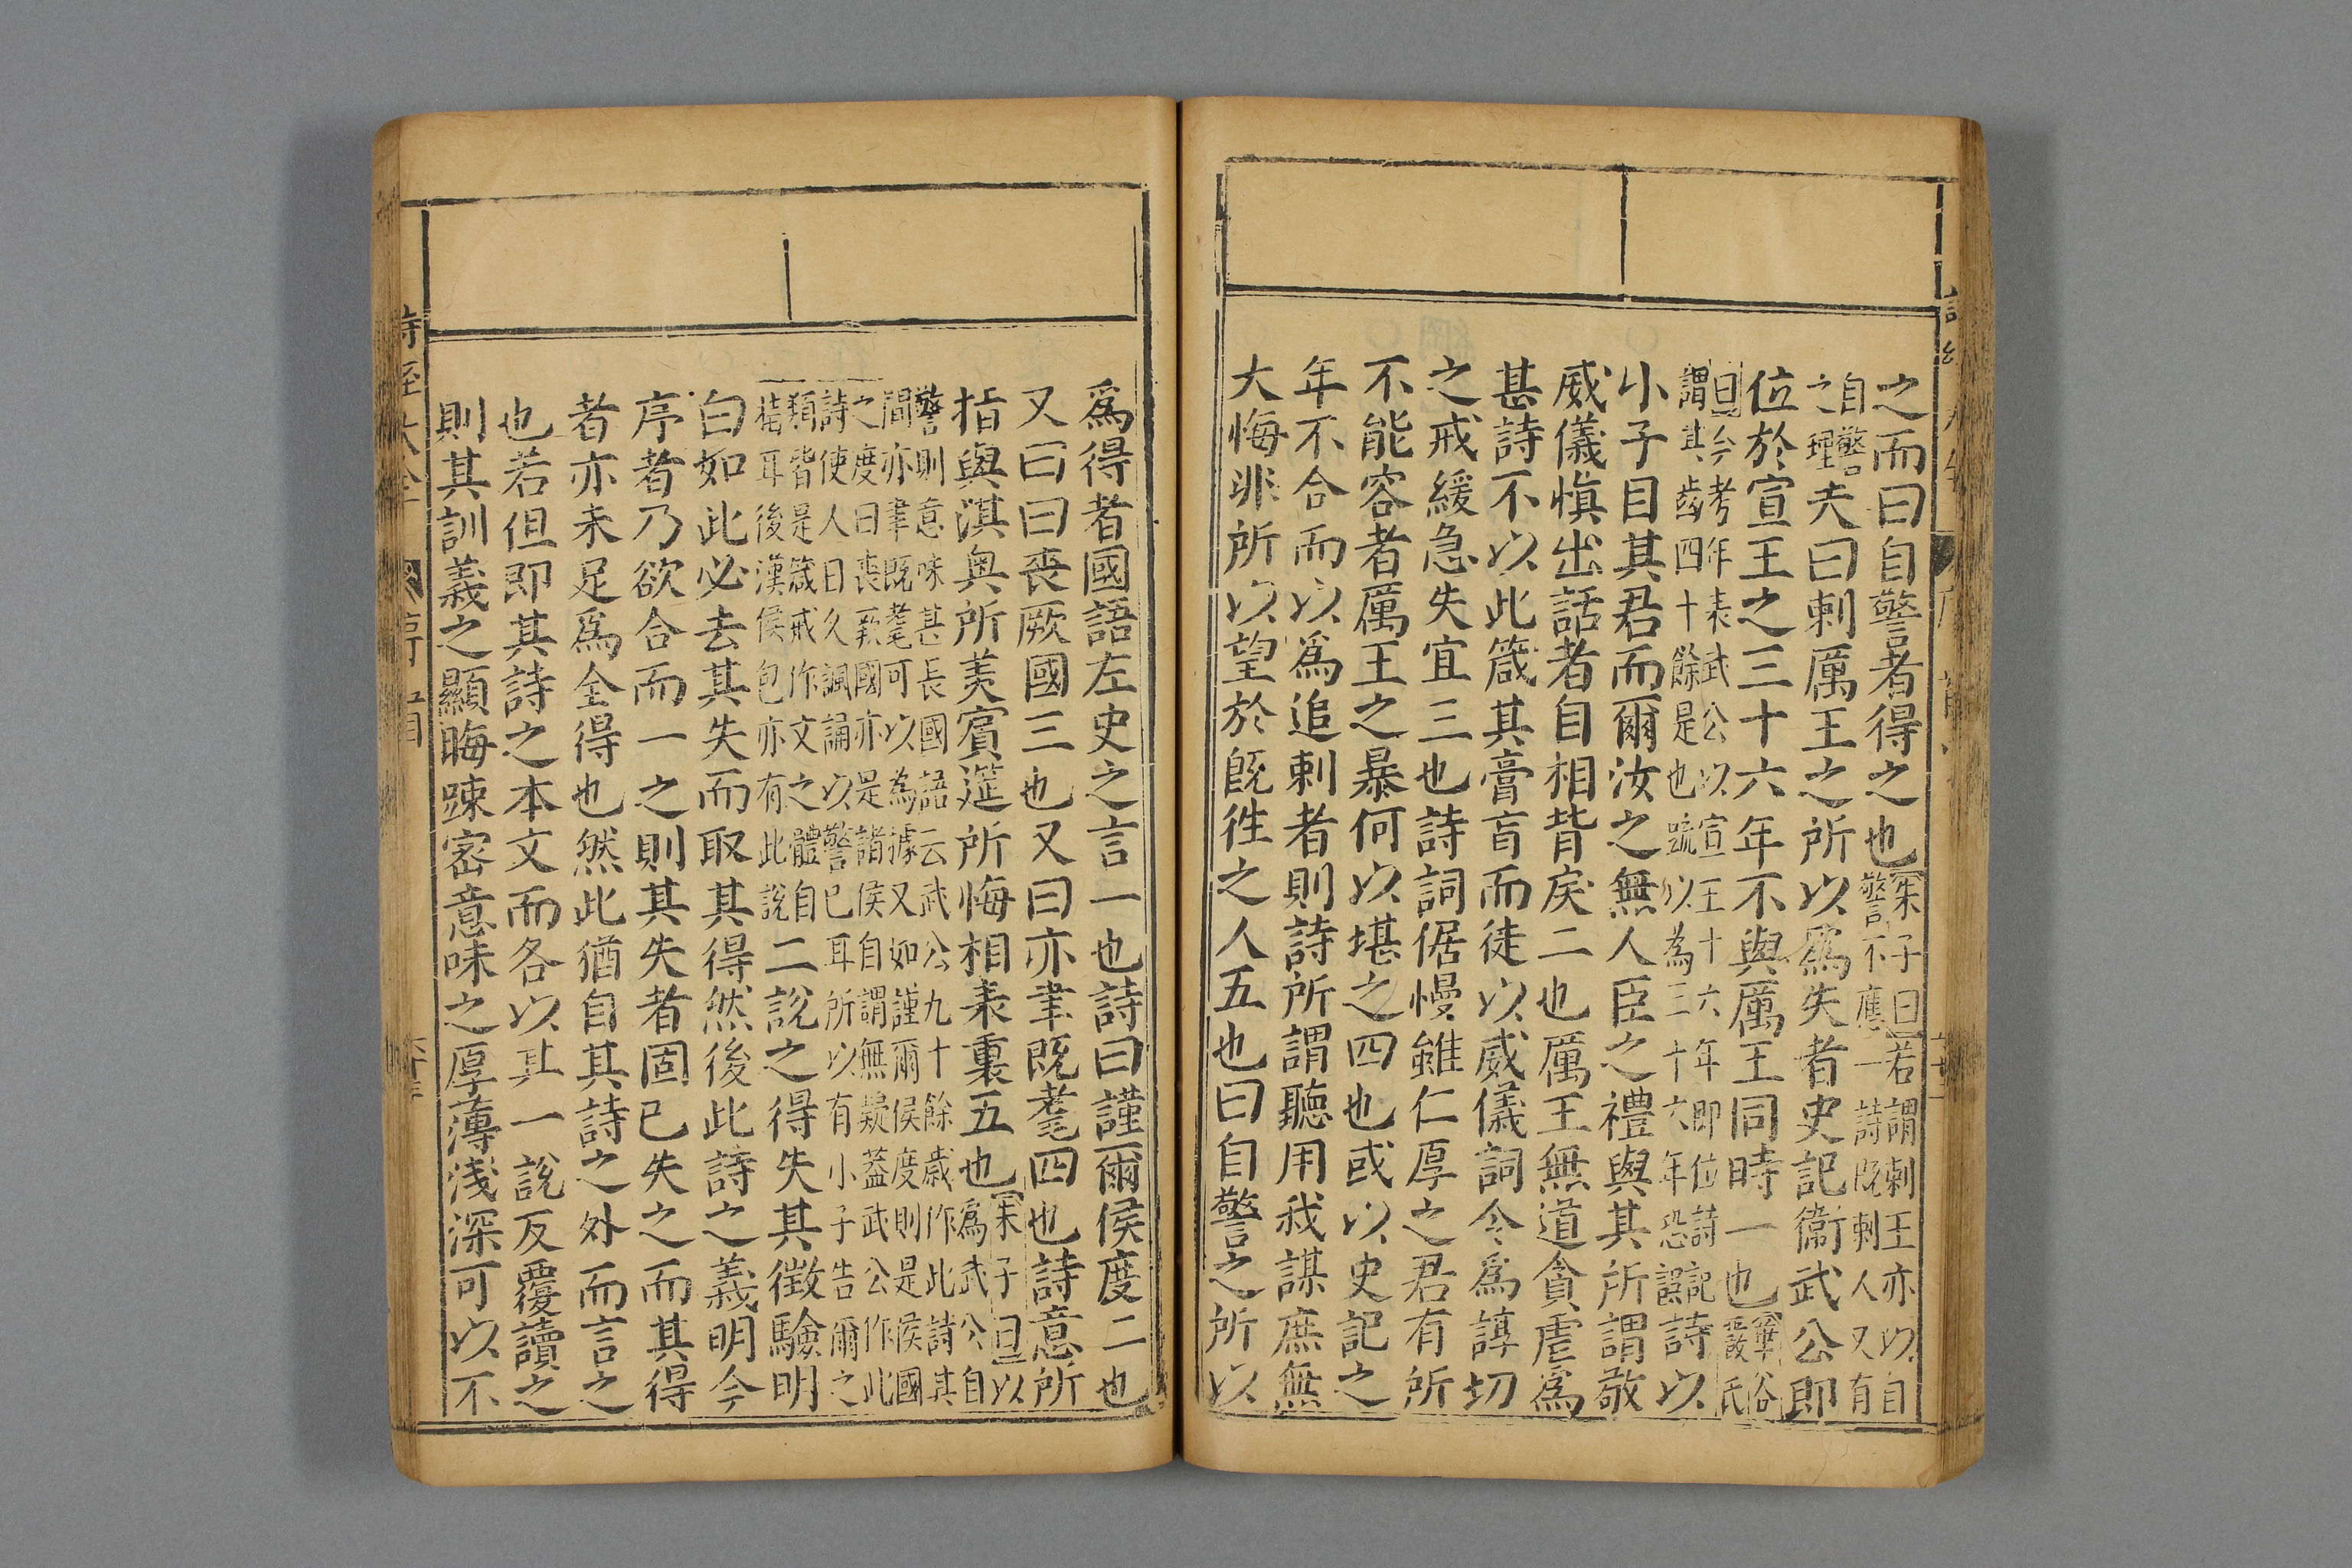 之而曰自警者得之也朱子曰若謂刺王亦以自警不應一詩既刺人又有
自警之理夫曰刺厲王之所以爲失者史記衞武公即
位於宣王之三十六年不與厲王同時一也華谷嚴氏
曰今考年表武公以宣王十六年即位詩記謂其齒四十餘是也疏以為三十六年恐誤詩以
小子目其君而爾汝之無人臣之禮與其所謂敬
威儀愼出話者自相背戾二也厲王無道貪虐爲
甚詩不以此箴其膏肓而徒以威儀詞令爲諄切
之戒緩急失宜三也詩詞倨慢雖仁厚之君有所
不能容者厲王之暴何以堪之四也或以史記之
年不合而以爲追刺者則詩所謂聽用我謀庶無
大悔非所以望於旣徃之人五也曰自警之所以
爲得者國語左史之言一也詩曰謹爾侯度二也
又曰曰喪厥國三也又曰亦聿既耄四也詩意所
指與淇奥所美賓筵所悔相表裏五也朱子曰以爲武公自
警則意味甚長國語云武公九十餘歳作此詩其間亦聿既耄可以為據又如謹爾侯度則是侯國
之度曰喪厥國亦是諸侯自謂無疑蓋武公作此詩使人日久諷誦以警已耳所以有小子告爾之
類皆是箴戒作文之體自若耳後漢侯包亦有此說二說之得失其徴驗明
白如此必去其失而取其得然後此詩之義明今
序者乃欲合而一之則其失者固已失之而其得
者亦未足爲全得也然此猶自其詩之外而言之
也若但即其詩之本文而各以其一說反覆讀之
則其訓義之顯晦踈宻意味之厚薄淺深可以不
詩經大全
序